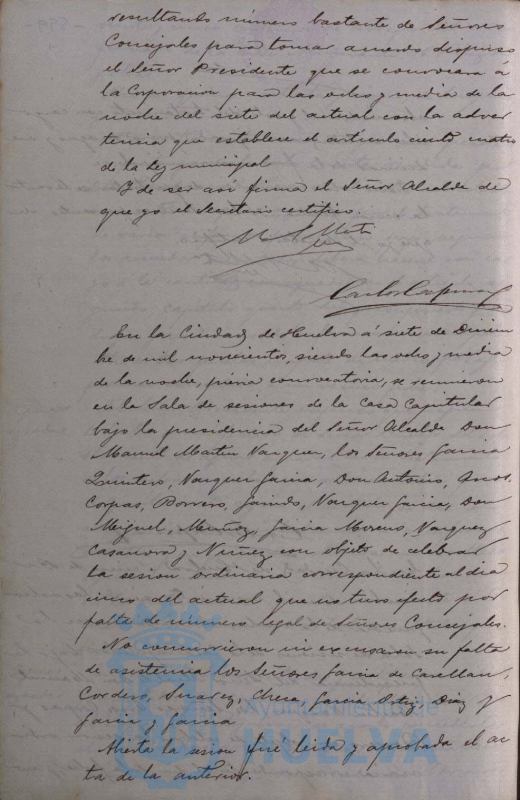 resultando número bastante de Señores
Concejales para tomar acuerdo dispuso
el Señor Presidente que se convocara á
la Corporacion para las ocho y media de la
noche del siete del actual con la adver
tencia que establece el artículo ciento cuatro
de la Ley municipal
Y de ser asi firma el Señor Alcalde de
que yo el Secretario certifico.
En la Ciudad de Huelva á siete de Diciem
bre de mil novecientos, siendo las ocho y media
de la noche, previa convocatoria, se reunieron
en la Sala de sesiones de la casa Capitular
bajo la presidencia del Señor Alcalde Don
Manuel Martin Vazquez, los Señores Garcia
Quintero, Vazquez Garcia, Don Antonio,
Corpas, Borrero, Galindo, Vazquez Garcia, Don
Miguel, Muñoz, Garcia Moreno, Vazquez
Casanova y Nuñez con objeto de celebrar
la sesion ordinaria correspondiente al dia
cinco del actual que no tuvo efecto por
falta de número legal de Señores Concejales.
No concurrieron ni excusaron su falta
de asistencia los Señores Garcia de Castellan,
Cordero, Suarez, Checa, Garcia Ortiz, Diaz y
Garcia y Garcia
Abierta la sesion fué leida y aprobada el ac
ta de la anterior.
Ayuntamiento de
HUELVA